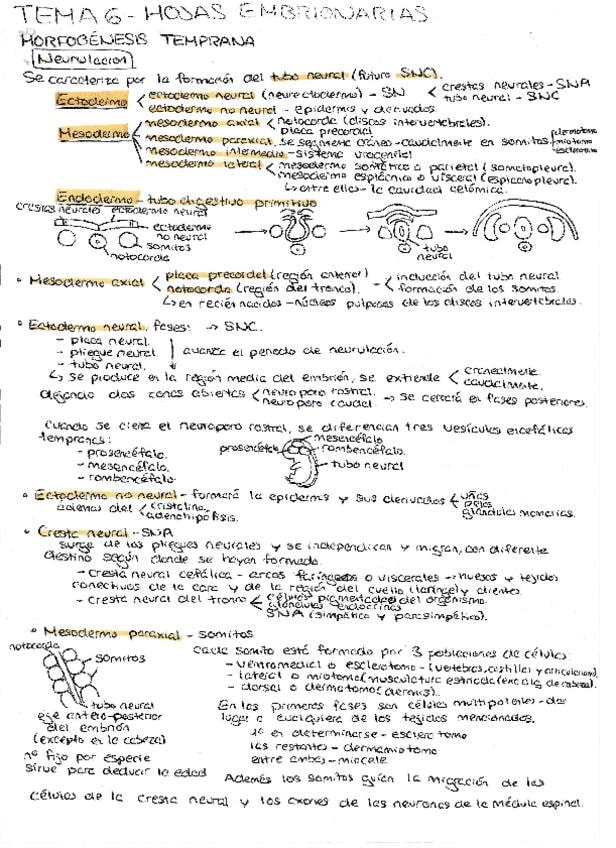 TEMA 6 - HOJAS EMBRIONARIAS
MORFOGÉNESIS TEMPRANA
Neurulación
Se caracteriza por la formación del tubo neural (futuro SNC).
Ectodermo
ectodermo neural (neurectodermo) - SN
crestas neurales - SNA
tubo neural - SNC
ectodermo no neural - epidermis y derivados
Mesodermo
mesodermo axial
notocorda (discos intervertebrales).
placa precordal
mesodermo paraxial se segmenta cráneo-caudalmente en somitos
miotomo
mesodermo intermedio - sistema urogenital
mesodermo lateral
mesodermo somático o parietal (somatopleura).
mesodermo esplácnico o visceral (esplacnopleura).
↳ entre ellos - la cavidad celómica.
Endodermo - tubo digestivo primitivo
crestas neurales ectodermo neural
ectodermo no neural
somitos
notocorda
tubo neural
• Mesodermo axial
placa precordal (región anterior)
notocorda (región del tronco).
- inducción del tubo neural
formación de los somitos.
↳ en recién nacidos - núcleos pulposos de los discos intervertebrales.
• Ectodermo neural, fases: → SNC.
- placa neural.
- pliegue neural.
- tubo neural.
avanza el periodo de neurulación.
↳ se produce en la región media del embrión, se extiende
cranealmente.
caudalmente.
dejando dos zonas abiertas
neuroporo rostral.
neuroporo caudal.
→ se cerrará en fases posteriores.
Cuando se cierra el neuroporo rostral, se diferencian tres vesículas encefálicas
tempranas:
- prosencéfalo.
- mesencéfalo.
- rombencéfalo
mesencéfalo
prosencéfalo
rombencéfalo.
tubo neural
• Ectodermo no neural - formará la epidermis y sus derivados
uñas
pelos
glándulas mamarias.
además del
cristalino.
adenohipófisis.
• Cresta neural - SNA
surge de los pliegues neurales y se independizan y migran, con diferente
destino según donde se hayan formado.
- cresta neural cefálica - arcos faríngeos o viscerales - huesos y tejidos
conectivos de la cara y de la región del cuello (laringe) y dientes.
- cresta neural del tronco
células pigmentadas del organismo.
glándulas endocrinas
SNA (simpático y parasimpático).
• Mesodermo paraxial - somitos
notocorda
somitos
tubo neural
eje antero-posterior
del embrión
(excepto en la cabeza)
nº fijo por especie
sirve para deducir la edad
Cada somito está formado por 3 poblaciones de células
- ventromedial o esclerotomo - (vertebras, costillas y articulaciones).
- lateral o miotomo (musculatura estriada (
- dorsal o dermatomo (dermis).
En las primeras fases son células multipotentes - dar
lugar a cualquiera de los tejidos mencionados.
1º en determinarse - esclerotomo
las restantes - dermamiotomo
entre ambas - miocele
Además los somitos guían la migración de las
células de la cresta neural y los axones de las neuronas de la médula espinal.